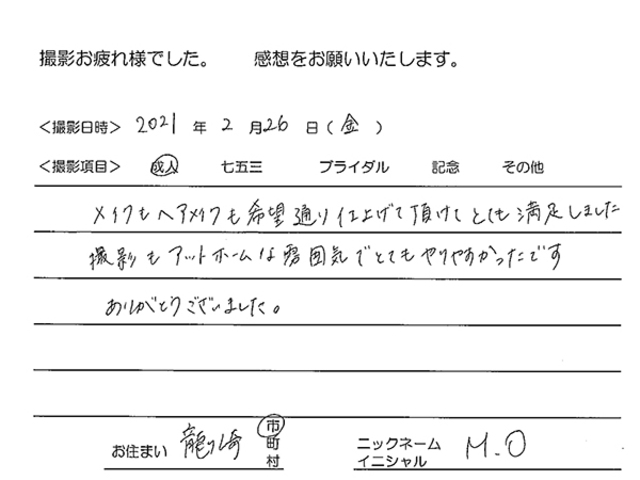 撮影お疲れ様でした。 感想をお願いいたします。
＜撮影日時＞ 2021 年 2 月 26 日（金）
＜撮影項目＞ 成人 七五三 ブライダル 記念 その他
メイクもヘアメイクも希望通り仕上げて頂けてとても満足しました
撮影もアットホームな雰囲気でとてもやりやすかったです
ありがとうございました。
お住まい 龍ヶ崎 市 町 村 ニックネーム イニシャル M.O